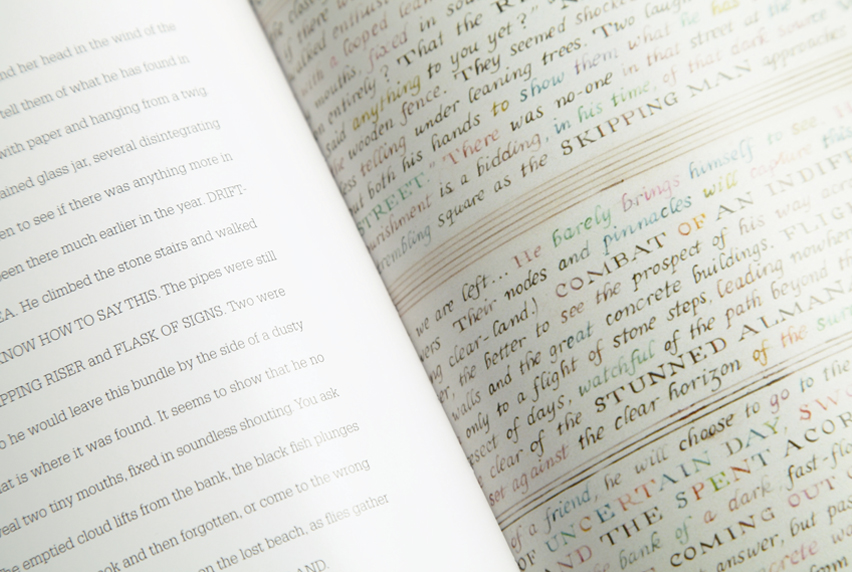 nd her head in the wind of the
tell them of what he has found in
with paper and hanging from a twig
ained glass jar, several disintegrating
en to see if there was anything more in
been there much earlier in the year. DRIFT-
EA. He climbed the stone stairs and walked
KNOW HOW TO SAY THIS. The pipes were still
PPING RISER and FLASK OF SIGNS. Two were
o he would leave this bundle by the side of a dusty
at is where it was found. It seems to show that he no
eal two tiny mouths, fixed in soundless shouting. You ask
he emptied cloud lifts from the bank, the black fish plunges
ook and then forgotten, or come to the wrong
on the lost beach, as flies gather
AND.
of there
walked enthusi
with a looped
mouths, fixed in
n entirely? That the
said anything to you yet?"
he wooden fence. They seemed shocke
less telling under leaning trees. Two laugh
ut both his hands to show them what he has
STREET." There was no-one in that street at the
urishment is a bidding, in his time, of that dark
trembling square as the SKIPPING MAN approaches
we are left... He barely brings himself to see.
vers Their nodes and pinnacles will capture this
ng clear-land.) COMBAT OF AN INDIFF
er, the better to see the prospect of his way
walls and the great concrete buildings. FLIGH
only to a flight of stone steps, leading nowher
sect of days, watchful of the path beyond th
clear of the STUNNED ALMANA
set against the clear horizon of the sur
of a friend, he will choose to go to the
OF UNCERTAIN DAY, SWO
AND THE SPENT ACOR
he bank of a dark fast-flo
COMING OUT
answer, but pas